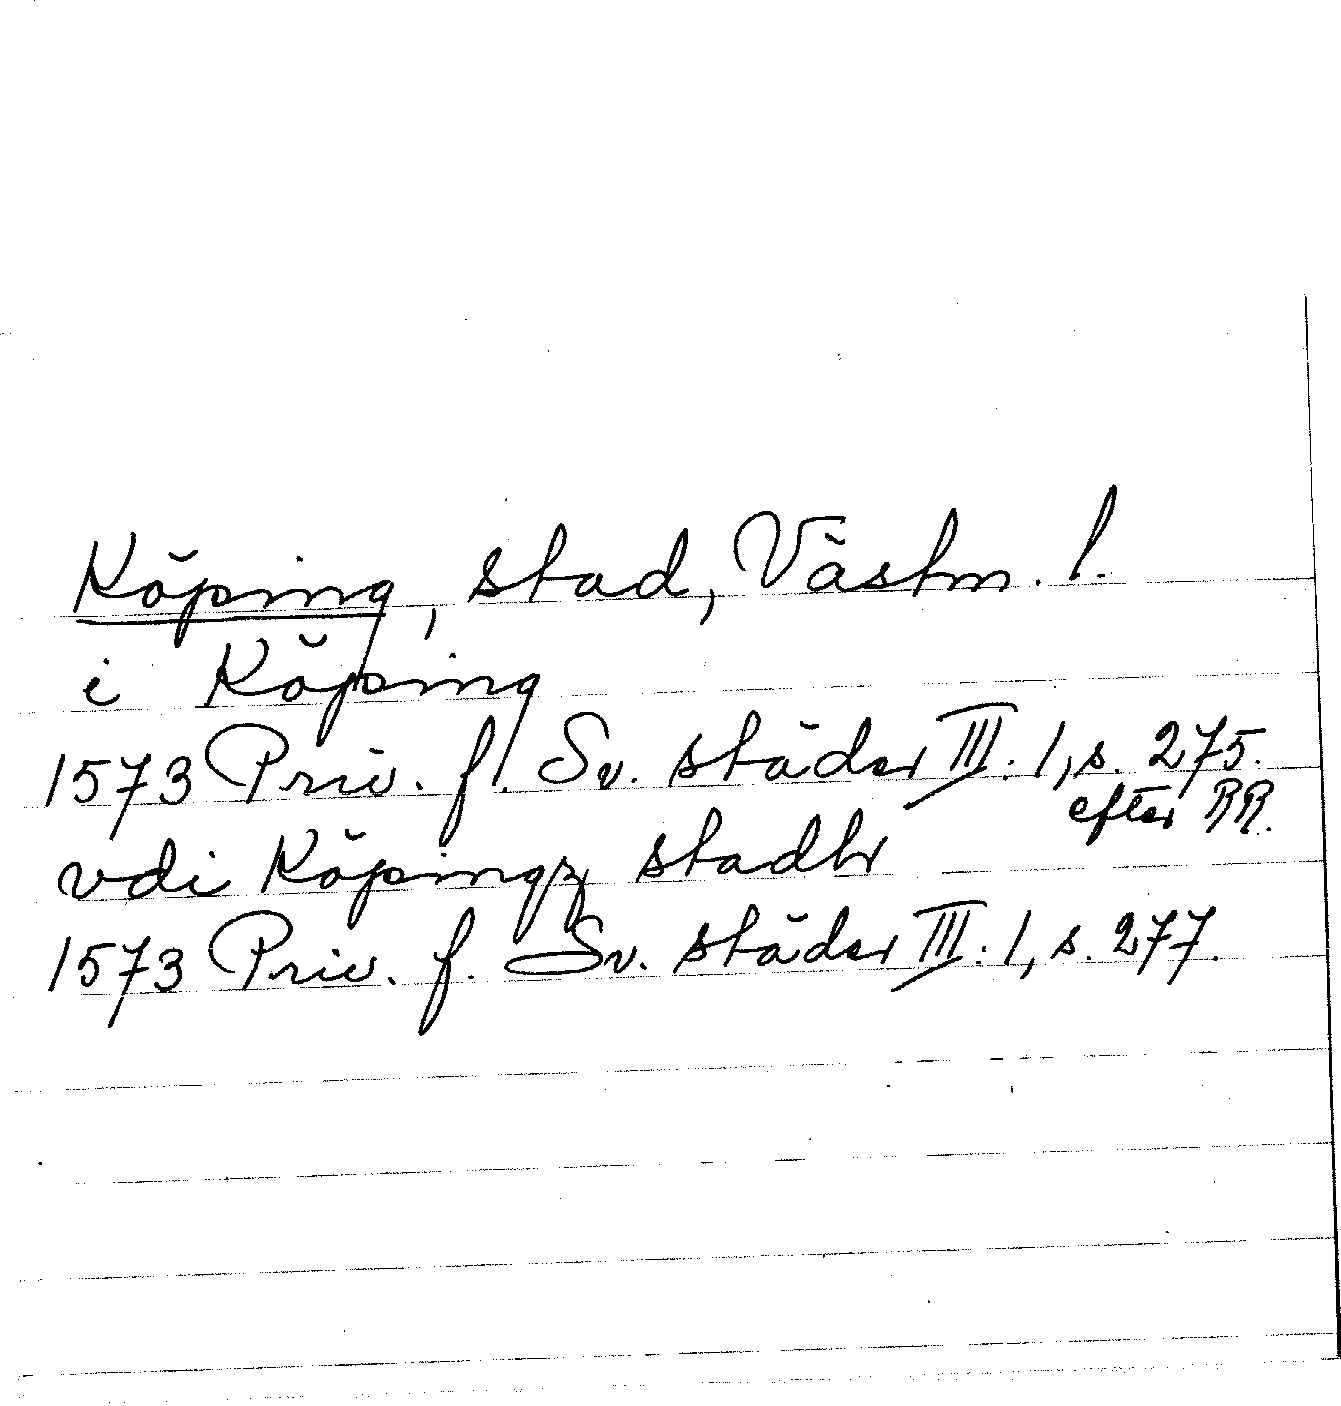 Köping, stad, Västm. l.
i Köping
1573 Priv. f. Sv. städer III:1, s. 275.
efter RR.
vdi Köpingz stadh
1573 Priv. f. Sv. städer III:1, s. 277.